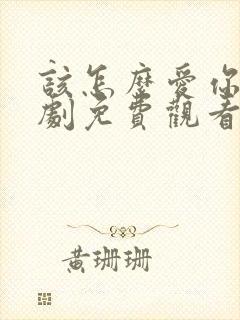 該怎麼愛你
劇免費觀看
黃珊珊